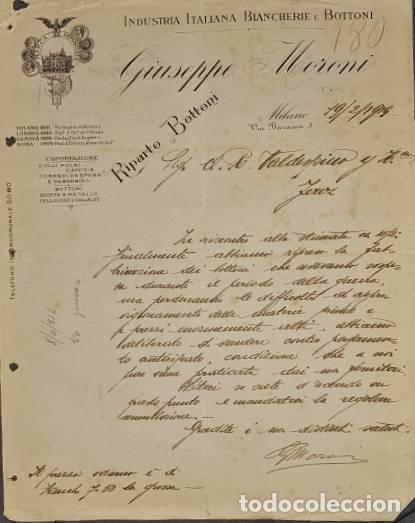 INDUSTRIA ITALIANA BIANCHERIE E BOTTONI
180
Giuseppe Moroni
Milano 19/2/1919
Via Baracca 3
Riparto Bottoni
MILANO 1891
LONDRA
GENOVA
ROMA
ESPORTAZIONE
COLLI, POLSI
CAMICIE
CORREDI DA SPOSA
E DA BAMBINO
BOTTONI
STOFFA E METALLO
CELLULOIDE E GALLALITE
TELEFONO INTERCOMUNALE 50.80
Sig. A. R. Valdespino y Hno
Jerez
In riscontro alla stimata
finalmente abbiamo ripreso la fab-
bricazione dei bottoni che avevamo sospe-
sa durante il periodo della guerra,
ma perdurando le difficoltà di approv-
vigionamento delle materie prime e
i prezzi enormemente alti, abbiamo
deliberato di vendere contro pagamento
anticipato, condizione che a noi
pure viene praticata dai ns fornitori.
se siete d'accordo su
questo punto e mandatemi la regolare
commissione.
Gradite i ns distinti saluti.
G Moroni
Il prezzo odierno è di
la grossa
todocoleccion.net